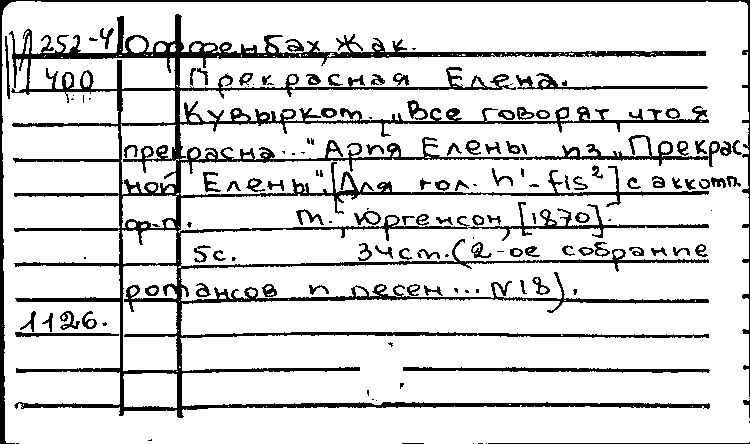 М 252-4 Оффенбах, Жак.
400 Прекрасная Елена.
Кувыркот. „Все говорят, что я
прекрасна..." Ария Елены из „Прекрас-
ной Елены". [Для гол. h'-fis²] с аккомп.
ф-п. М., Юргенсон, [1870].
5с. 34ст. (2-ое собрание
романсов и песен... №18).
1126.